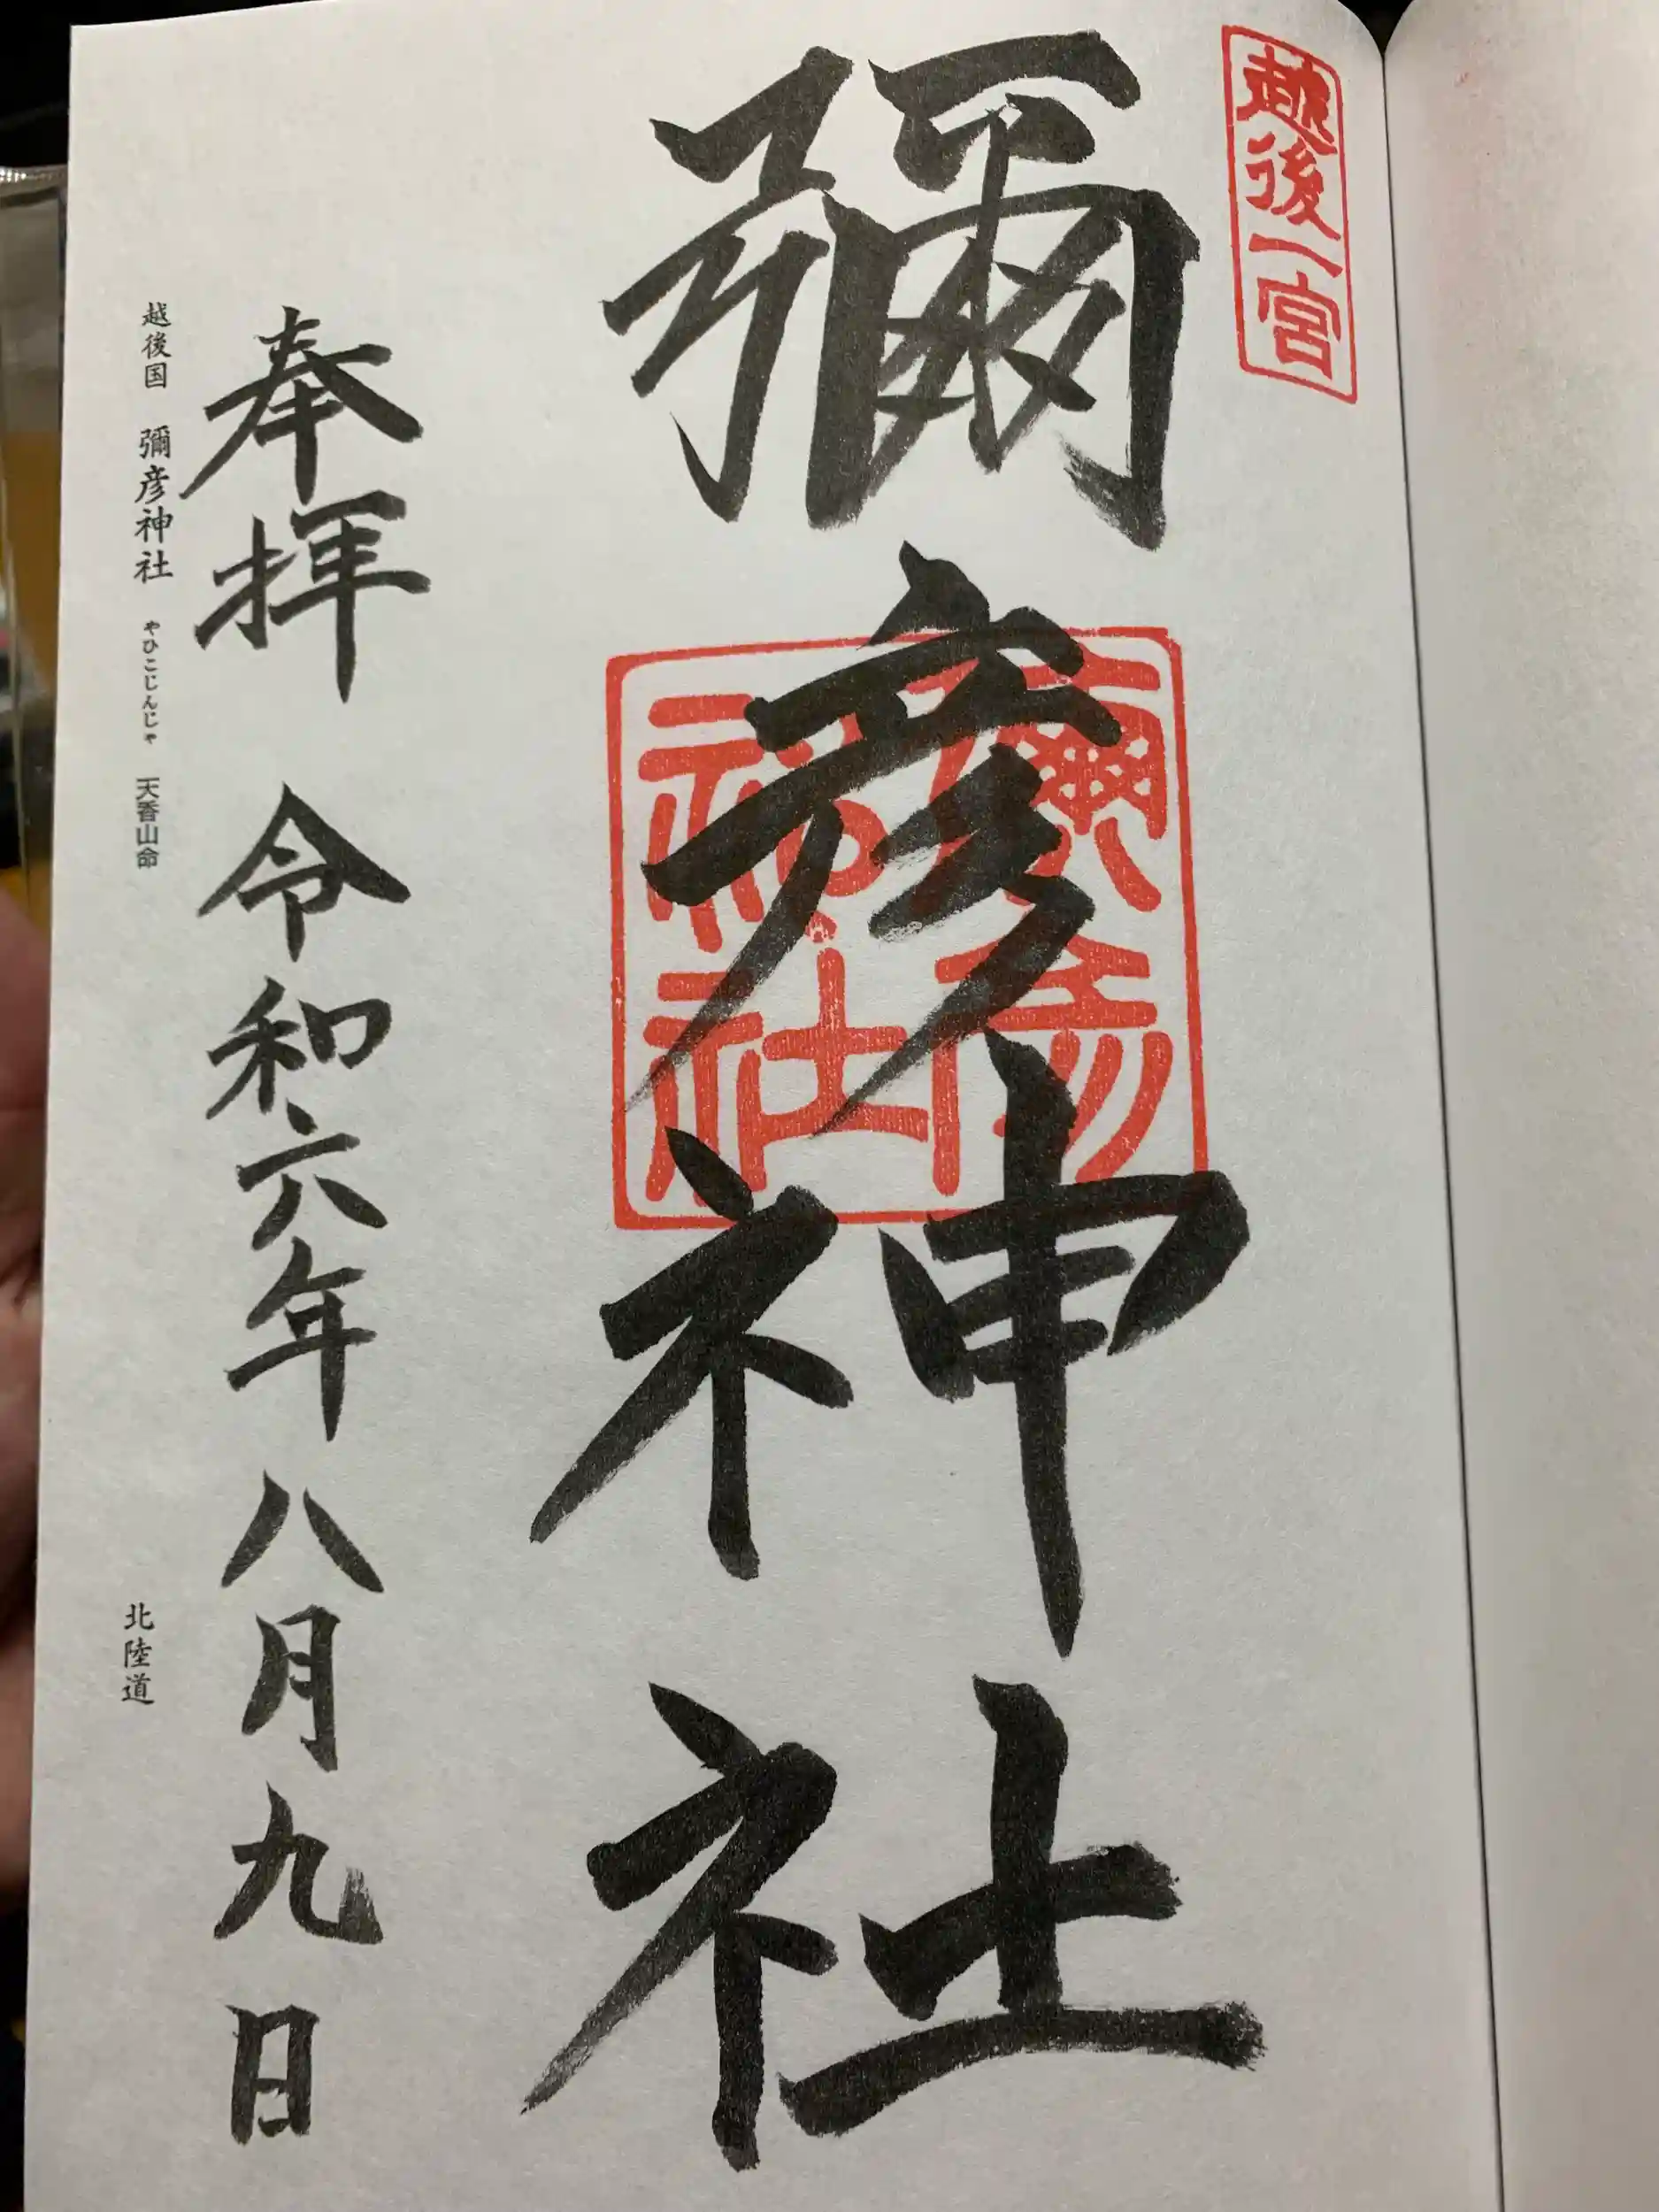 越後一宮
彌彦神社
彌彦
神社
奉拝 令和六年 八月九日
越後国 彌彦神社 やひこじんじゃ 天香山命 北陸道